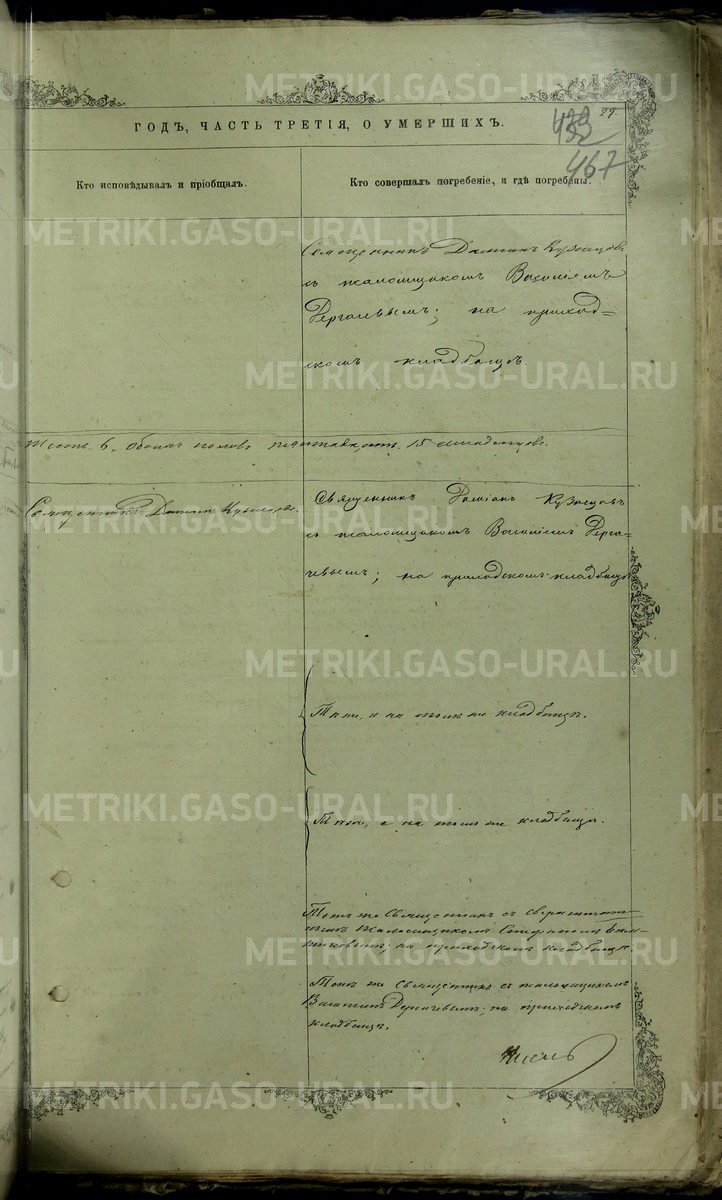 ГОДЪ, ЧАСТЬ ТРЕТІЯ, О УМЕРШИХЪ.
29.
467
Кто исповѣдывалъ и пріобщалъ.
Кто совершалъ погребеніе, и гдѣ погребены.
Священникъ Даміанъ Кузнецовъ
съ псаломщикомъ Василіемъ
на приход=
скомъ кладбищѣ.
6, обоихъ половъ 15 младенцовъ.
Священникъ Даміанъ Кузнецовъ.
Священникъ Даміанъ Кузнецовъ
съ псаломщикомъ Василіемъ Дерга-
чевымъ; на приходскомъ кладбищѣ
Тѣже, и на томъ же кладбищѣ.
Тѣже, и на томъ же кладбищѣ.
Тотъ же Священникъ съ сверхштат-
нымъ псаломщикомъ
на приходскомъ кладбищѣ.
Тотъ же Священникъ съ псаломщикомъ
Василіемъ Дергачевымъ; на приходскомъ
кладбищѣ.
METRIKI.GASO-URAL.RU